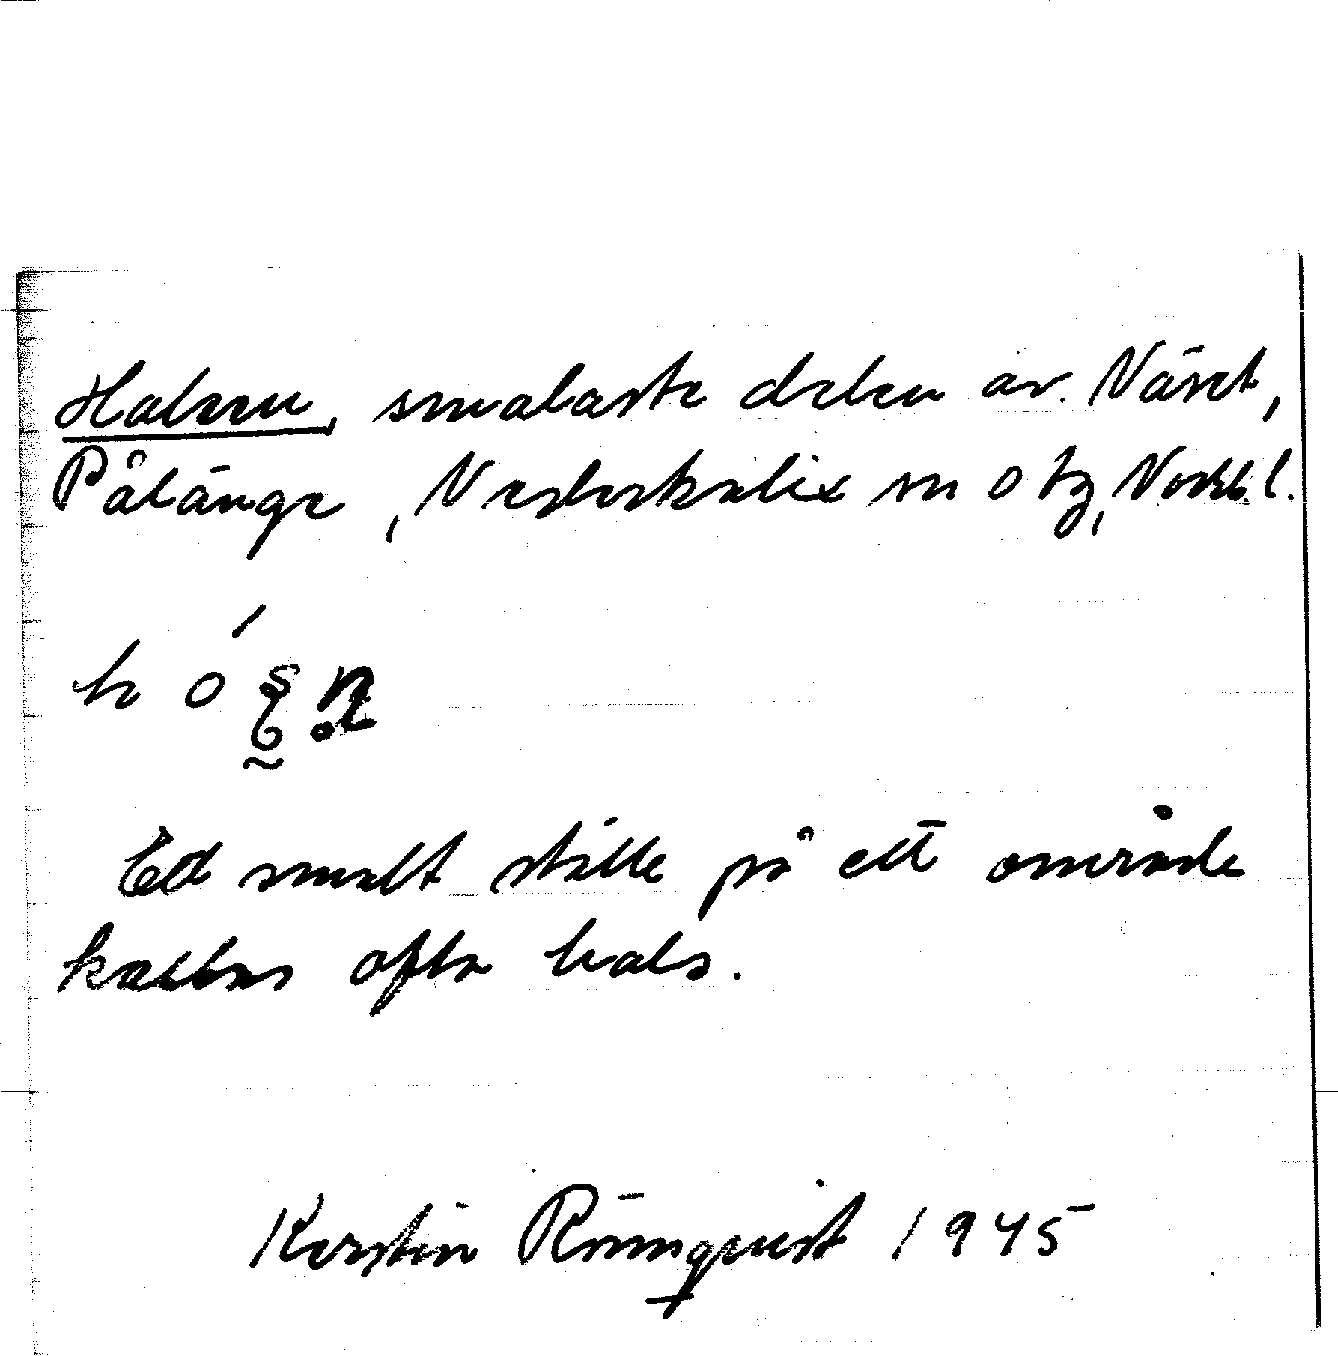 Halsen, smalaste delen av Näset,
Pålänge, Nederkalix sn o tg, Norrb. l.
Ett smalt ställe på ett område
kallas ofta hals.
Kerstin Rönnquist 1945